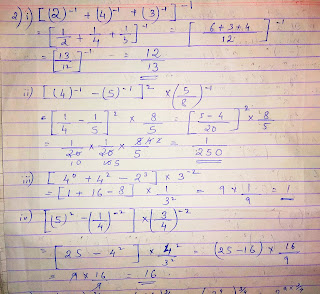 2) i) [(2)⁻¹ + (4)⁻¹ + (3)⁻¹]⁻¹
= [1/2 + 1/4 + 1/3]⁻¹ = [(6+3+4)/12]⁻¹
= [13/12]⁻¹ = 12/13
ii) [(4)⁻¹ - (5)⁻¹]² × (5/8)⁻¹
= [1/4 - 1/5]² × 8/5 = [(5-4)/20]² × 8/5
= 1/20 × 1/20 × 8/5 = 1/250
iii) [4⁰ + 4² - 2³] × 3⁻²
= [1 + 16 - 8] × 1/3² = 9 × 1/9 = 1
iv) [(5)² - (1/4)⁻²] × (3/4)⁻²
= [25 - 4²] × 4²/3² = (25-16) × 16/9
= 9 × 16/9 = 16